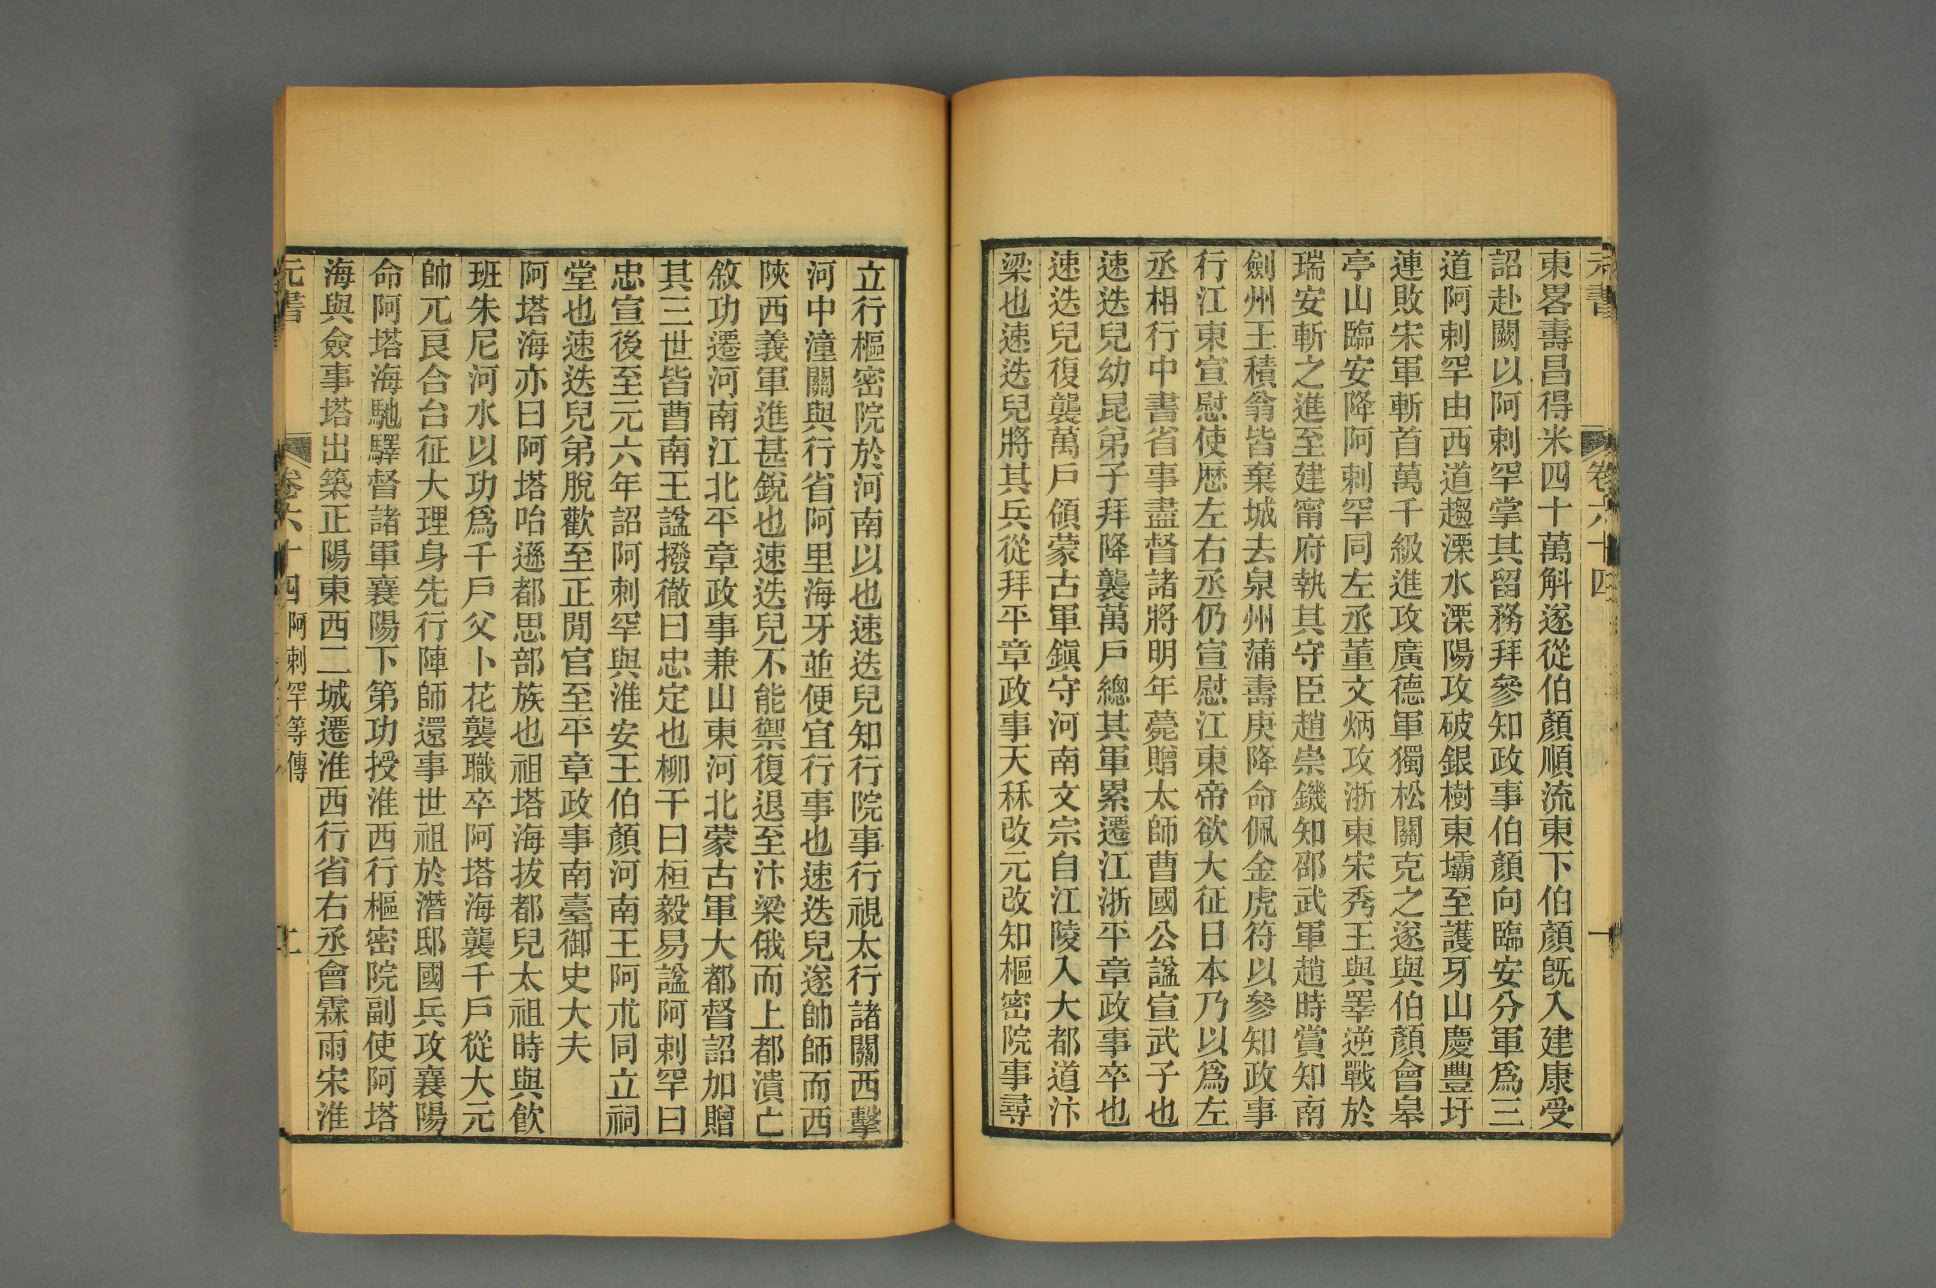 元書
卷六十四
一
東畧壽昌得米四十萬斛遂從伯顏順流東下伯顏旣入建康受
詔赴闕以阿剌罕掌其留務拜參知政事伯顏向臨安分軍爲三
道阿剌罕由西道趨溧水溧陽攻破銀樹東壩至護牙山慶豐圩
連敗宋軍斬首萬千級進攻廣德軍獨松關克之遂與伯顏會皋
亭山臨安降阿剌罕同左丞董文炳攻浙東宋秀王與睪逆戰於
瑞安斬之進至建甯府執其守臣趙崇鐖知邵武軍趙時賞知南
劍州王積翁皆棄城去泉州蒲壽庚降命佩金虎符以參知政事
行江東宣慰使歷左右丞仍宣慰江東帝欲大征日本乃以爲左
丞相行中書省事盡督諸將明年薨贈太師曹國公諡宣武子也
速迭兒幼昆弟子拜降襲萬戶總其軍累遷江浙平章政事卒也
速迭兒復襲萬戶領蒙古軍鎭守河南文宗自江陵入大都道汴
梁也速迭兒將其兵從拜平章政事天秝改元改知樞密院事尋
立行樞密院於河南以也速迭兒知行院事行視太行諸關西擊
河中潼關與行省阿里海牙並便宜行事也速迭兒遂帥師而西
陝西義軍進甚銳也速迭兒不能禦復退至汴梁俄而上都潰亡
敘功遷河南江北平章政事兼山東河北蒙古軍大都督詔加贈
其三世皆曹南王諡撥徹曰忠定也柳干曰桓毅易諡阿剌罕曰
忠宣後至元六年詔阿剌罕與淮安王伯顏河南王阿朮同立祠
堂也速迭兒弟脫歡至正閒官至平章政事南臺御史大夫
阿塔海亦曰阿塔咍遜都思部族也祖塔海拔都兒太祖時與飮
班朱尼河水以功爲千戶父卜花襲職卒阿塔海襲千戶從大元
帥兀良合台征大理身先行陣師還事世祖於潛邸國兵攻襄陽
命阿塔海馳驛督諸軍襄陽下第功授淮西行樞密院副使阿塔
海與僉事塔出築正陽東西二城遷淮西行省右丞會霖雨宋淮
元書
卷六十四
阿剌罕等傳
二